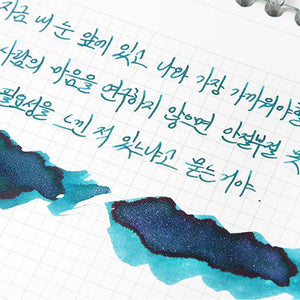 지금 내 눈 앞에 있고 나와 가장 가까워야할
사람의 마음을 연구하지 않으면 안절부절 못
필요성을 느낀 적 있냐고 묻는거야.